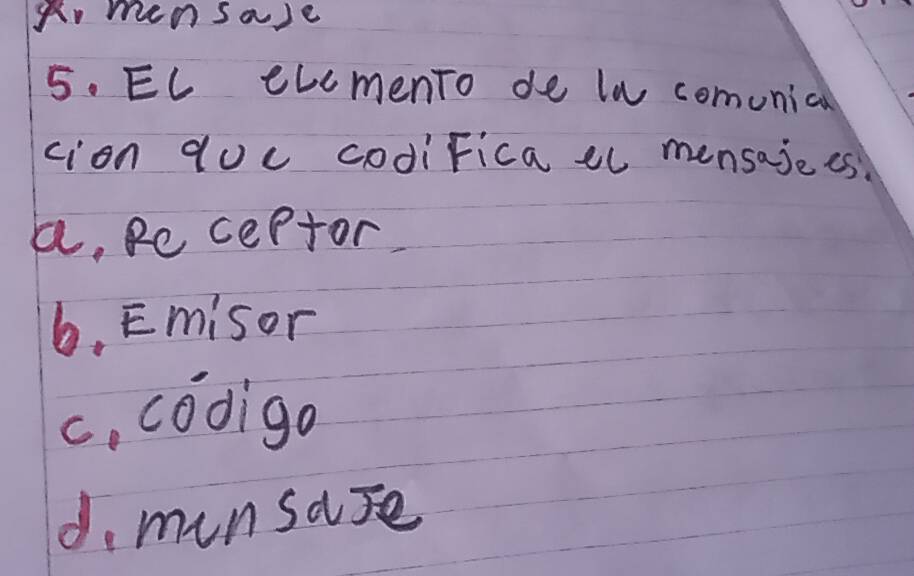 x. mensaje
5. El elemento de la comunica
cion que codifica el mensaje es:
a. Receptor
b. Emisor
c. código
d. mensaje